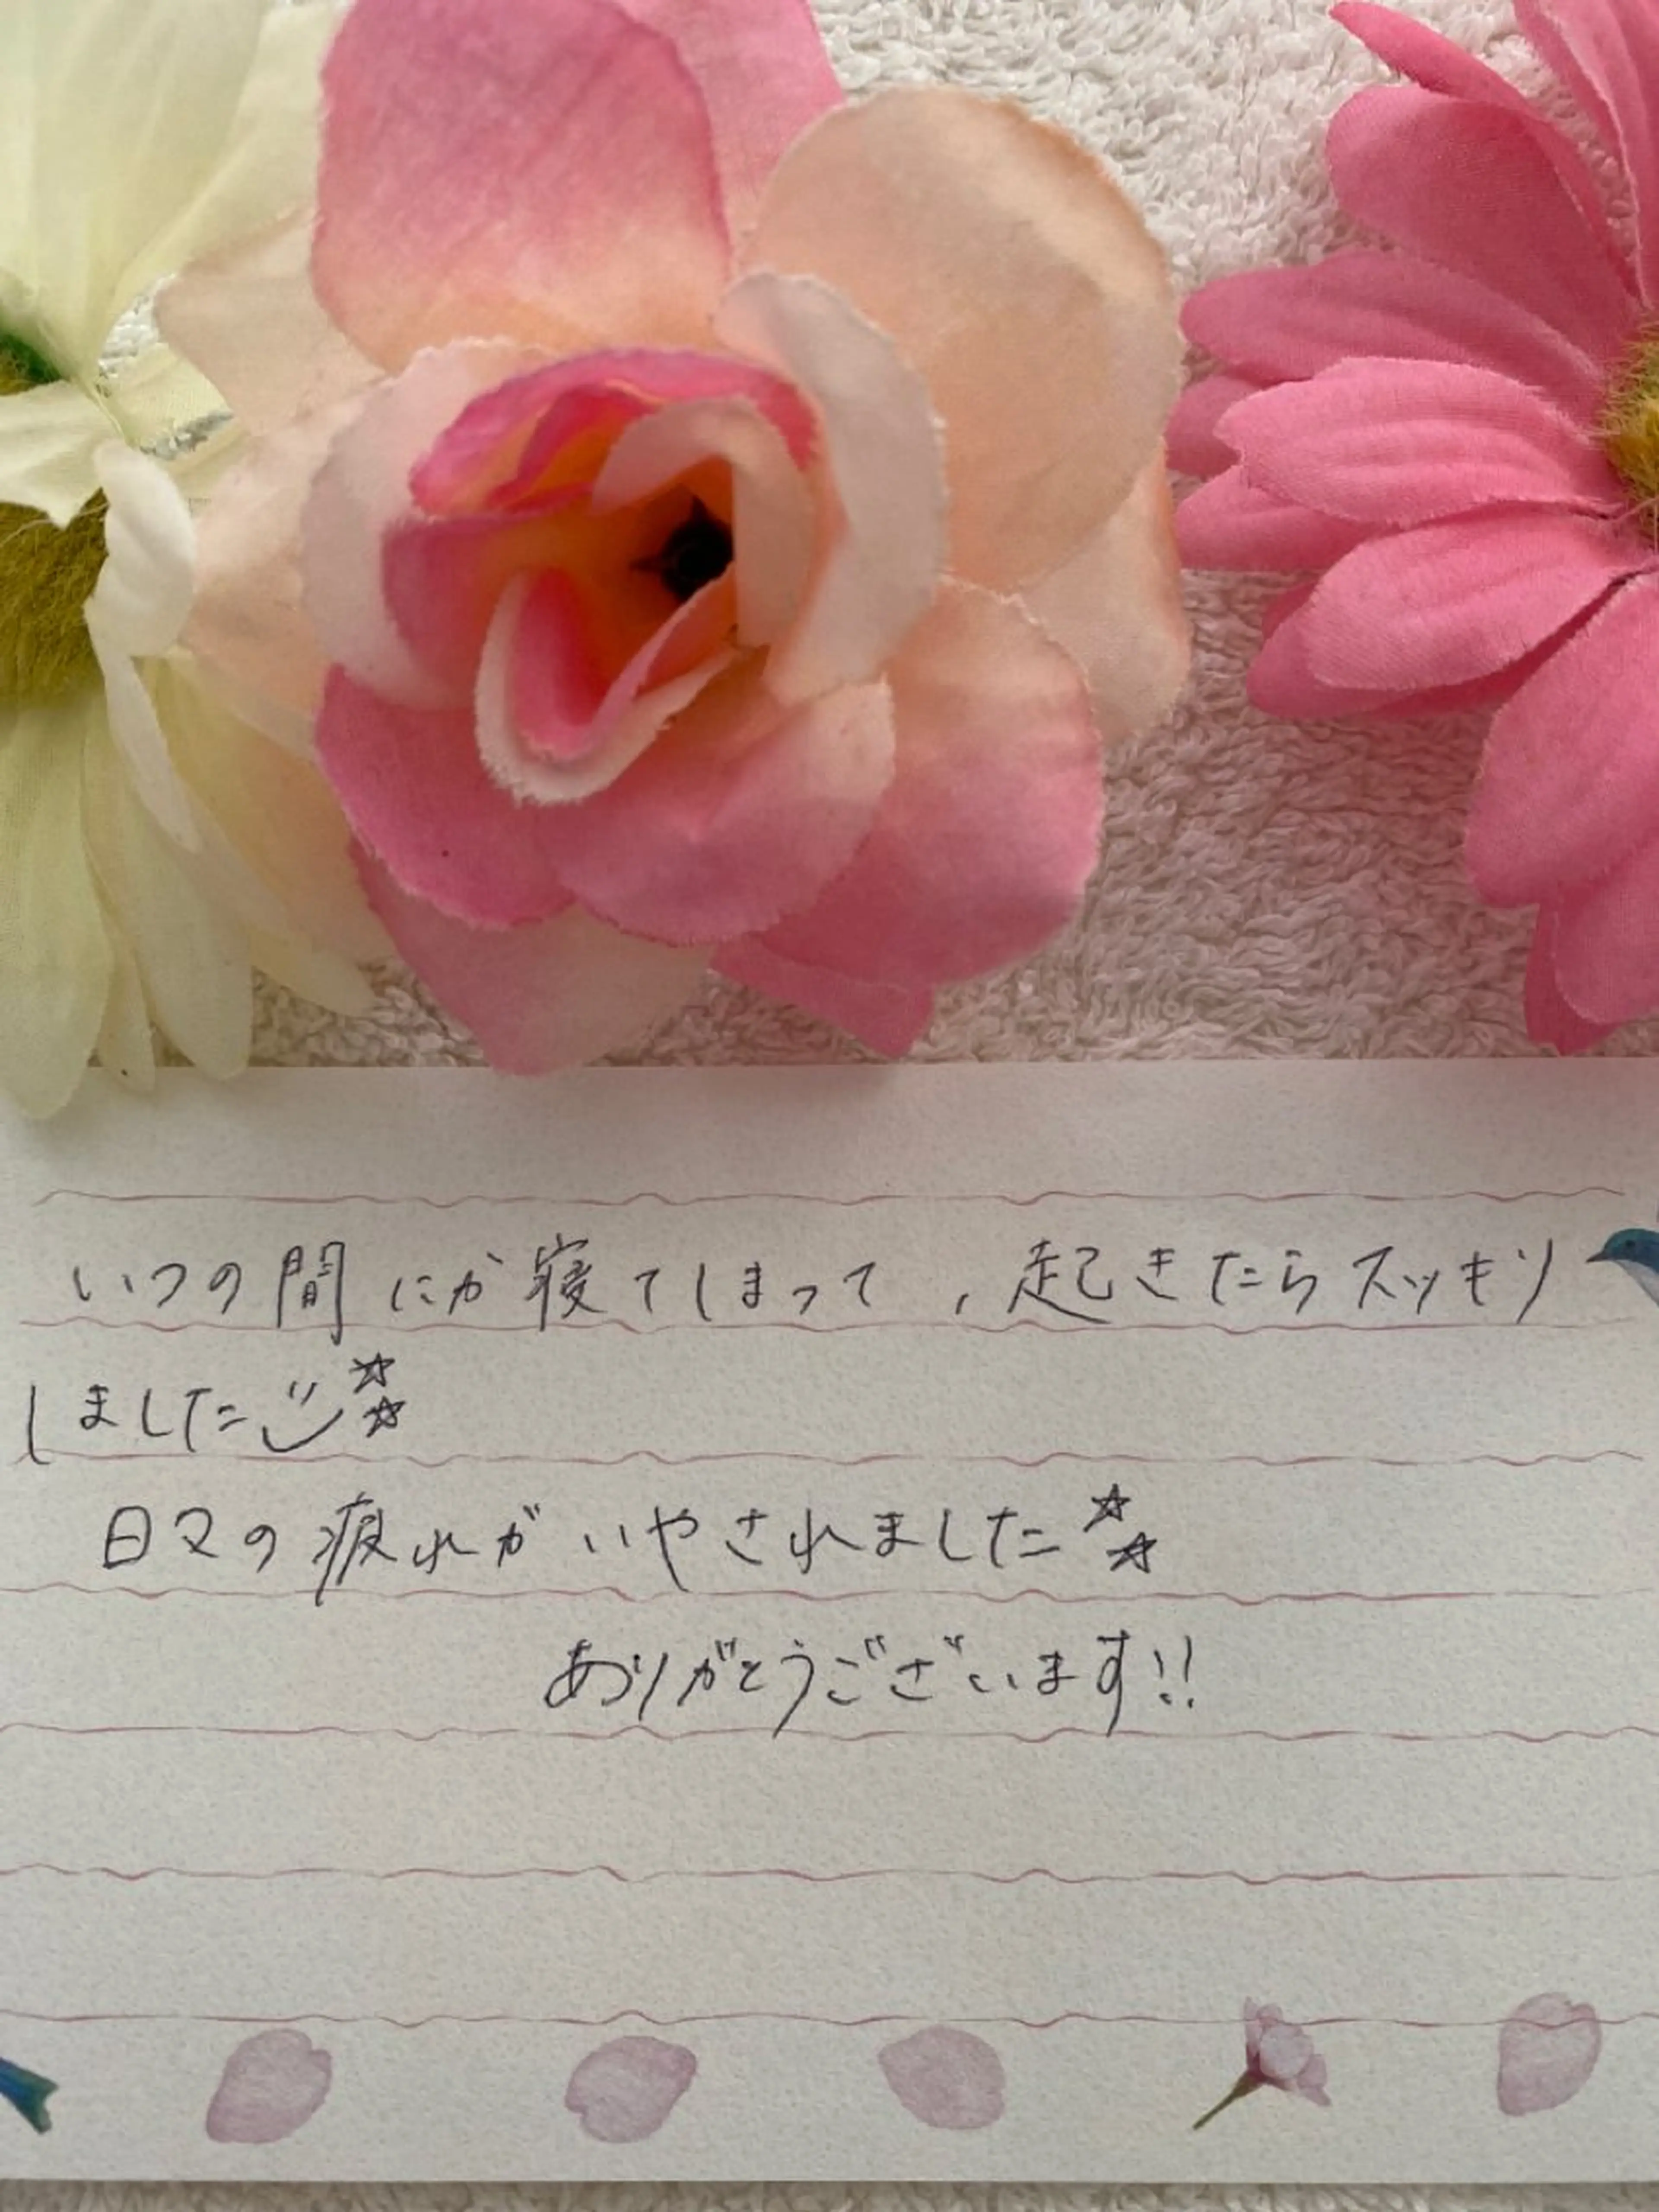 いつの間にか寝てしまって、起きたらスッキリ
しました☆☆
日々の疲れがいやされました☆☆
ありがとうございます!!